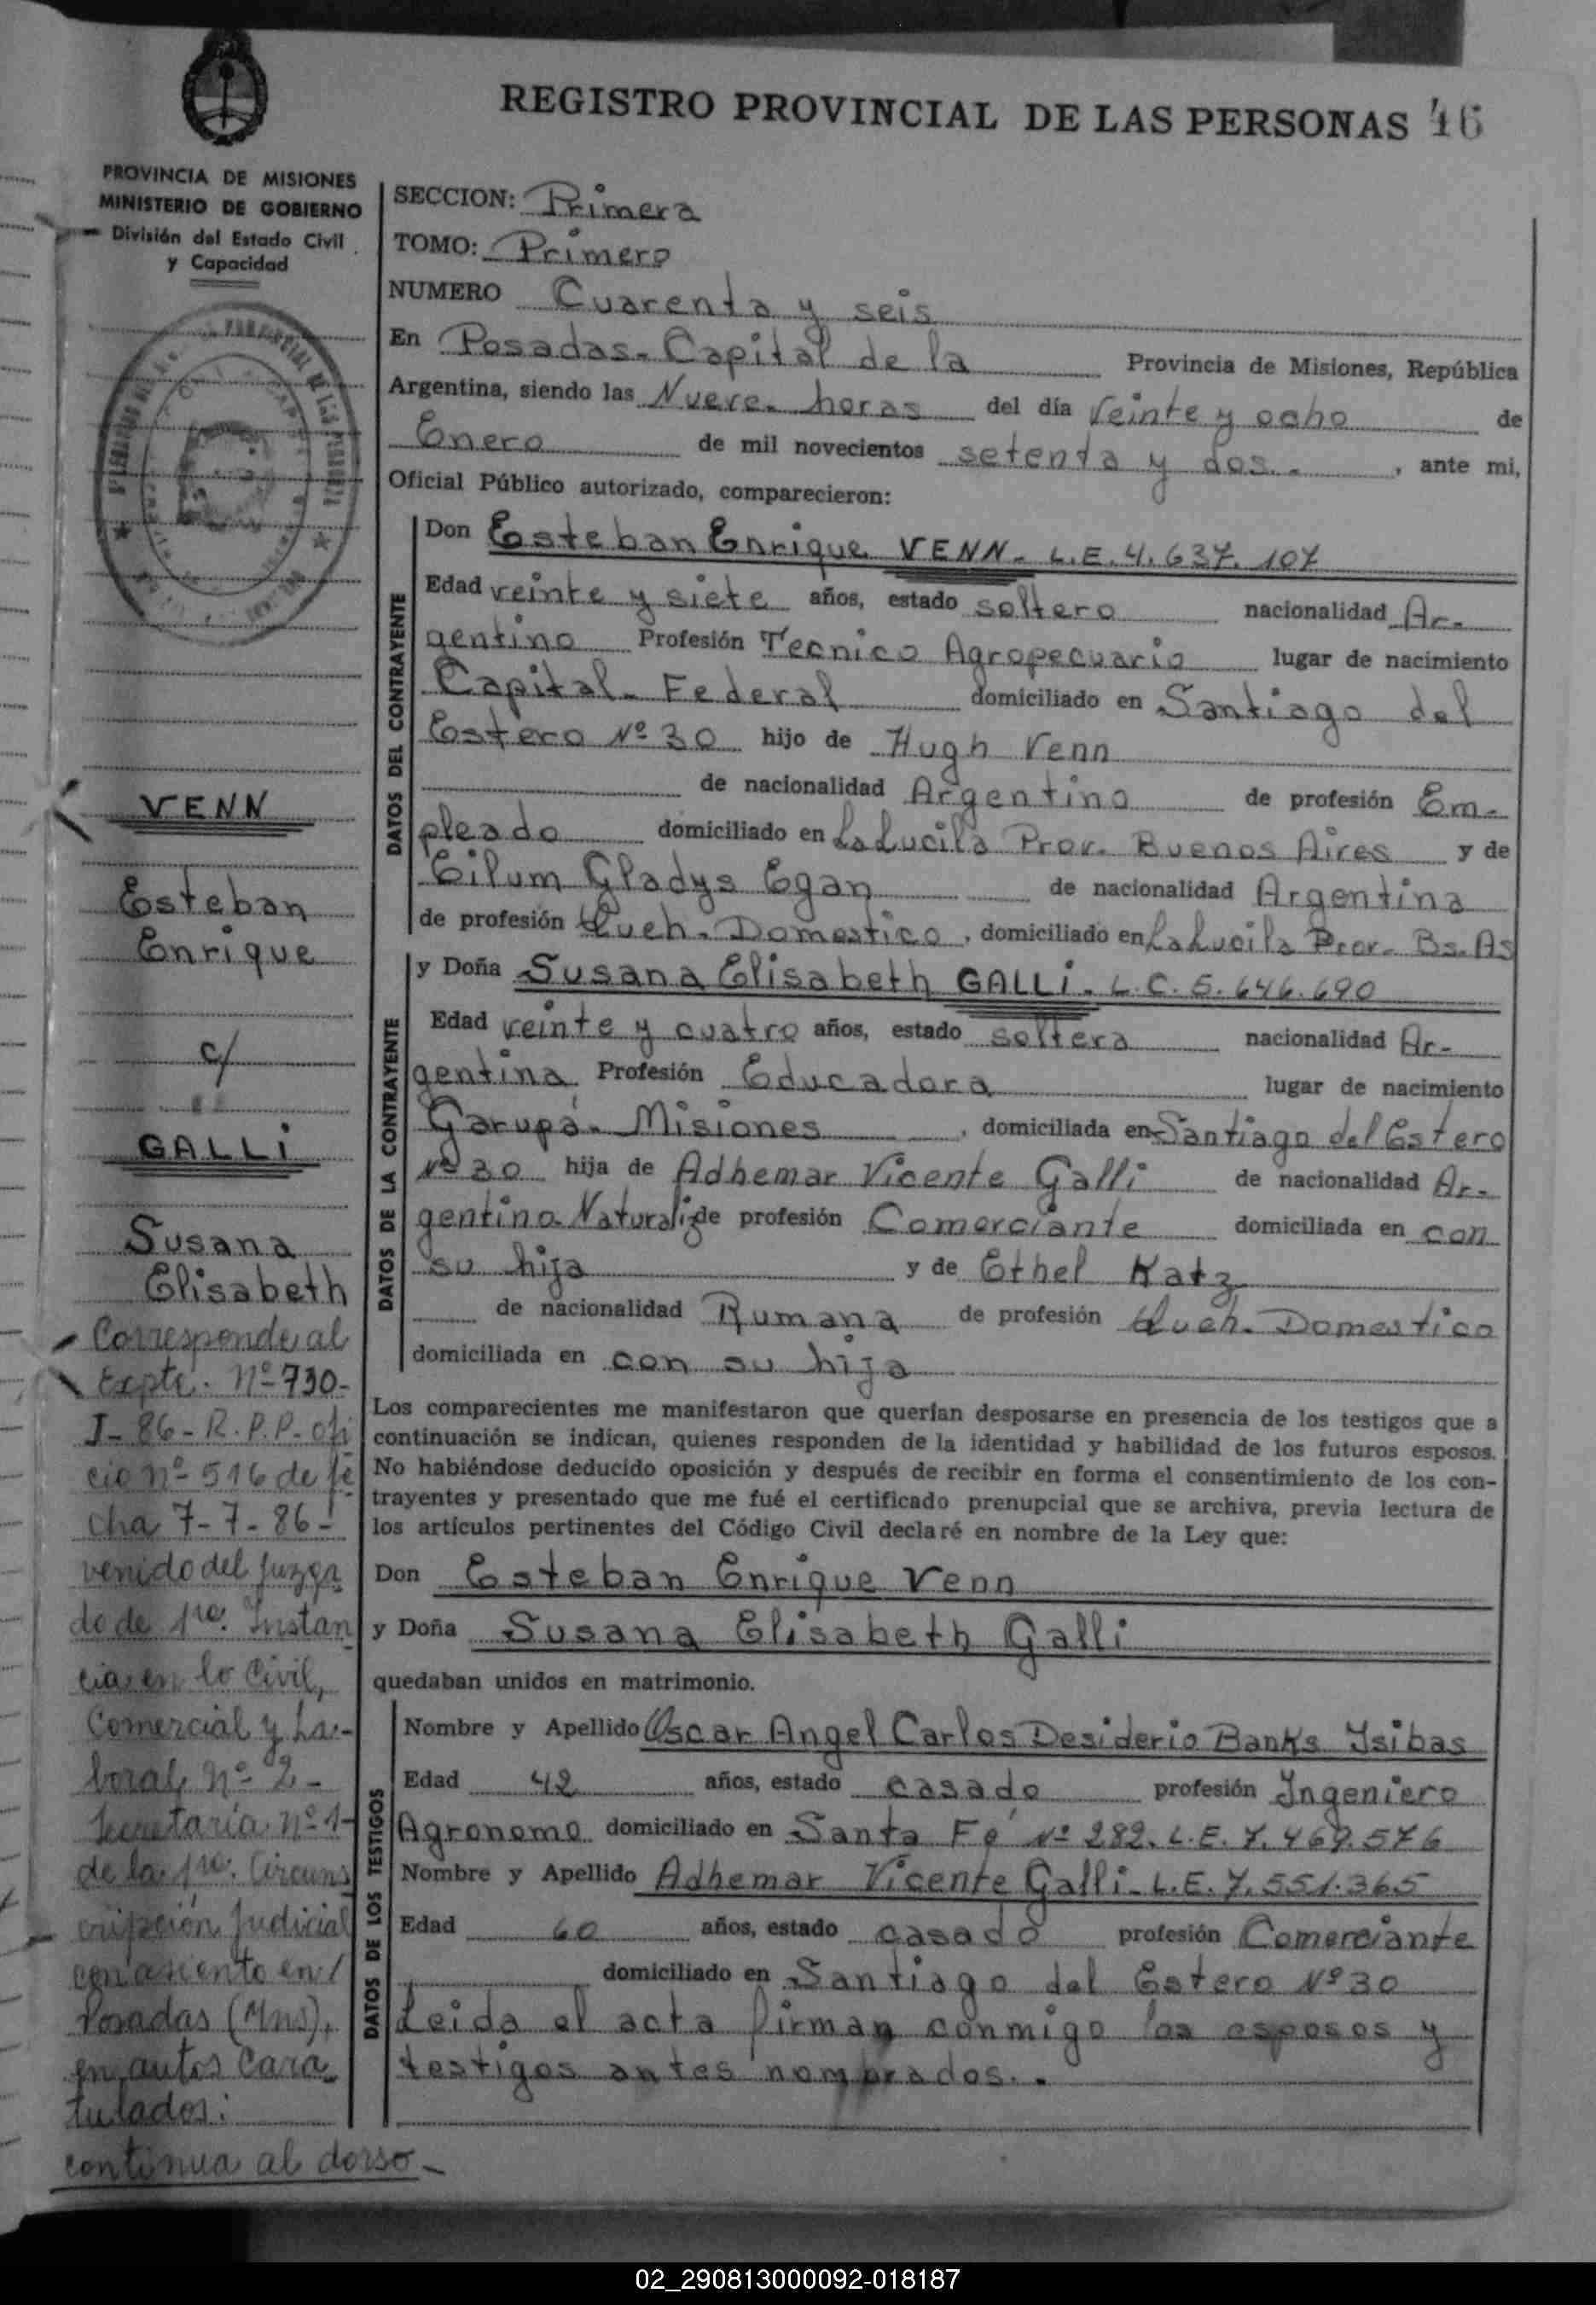 REGISTRO PROVINCIAL DE LAS PERSONAS 46
PROVINCIA DE MISIONES
MINISTERIO DE GOBIERNO
División del Estado Civil
y Capacidad
VENN
Esteban
Enrique
c/
GALLI
Susana
Elisabeth
Corresponde al
Expte. Nº 730-
I-86-R.P.P. ofi
cio nº 516 de fe
cha 7-7-86-
venido del Juzga
do de 1ra. Instan
cia en lo Civil,
Comercial y La-
boral nº 2-
Secretaría nº 1-
de la 1ra. Circuns
cripción Judicial
con asiento en
Posadas (Mns),
en autos cara
tulados:
continua al dorso-
SECCION: Primera
TOMO: Primero
NUMERO Cuarenta y seis
En Posadas-Capital de la Provincia de Misiones, República
Argentina, siendo las Nueve- horas del día Veinte y ocho de
Enero de mil novecientos setenta y dos.- , ante mi,
Oficial Público autorizado, comparecieron:
DATOS DEL CONTRAYENTE
Don Esteban Enrique VENN- L.E. 4.637.107
Edad veinte y siete años, estado soltero nacionalidad Ar-
gentino Profesión Tecnico Agropecuario lugar de nacimiento
Capital- Federal domiciliado en Santiago del
Estero Nº 30 hijo de Hugh Venn
de nacionalidad Argentino de profesión Em-
pleado domiciliado en La Lucila Prov. Buenos Aires y de
Eilum Gladys Egan de nacionalidad Argentina
de profesión Queh. Domestico, domiciliado en La Lucila Prov- Bs. As
DATOS DE LA CONTRAYENTE
y Doña Susana Elisabeth GALLI- L.C. 5.646.690
Edad veinte y cuatro años, estado soltera nacionalidad Ar-
gentina Profesión Educadora lugar de nacimiento
Garupá- Misiones , domiciliada en Santiago del Estero
Nº 30 hija de Adhemar Vicente Galli de nacionalidad Ar-
gentino Naturaliz de profesión Comerciante domiciliada en con
su hija y de Ethel Katz
de nacionalidad Rumana de profesión Queh. Domestico
domiciliada en con su hija
Los comparecientes me manifestaron que querían desposarse en presencia de los testigos que a
continuación se indican, quienes responden de la identidad y habilidad de los futuros esposos.
No habiéndose deducido oposición y después de recibir en forma el consentimiento de los con-
trayentes y presentado que me fué el certificado prenupcial que se archiva, previa lectura de
los artículos pertinentes del Código Civil declaré en nombre de la Ley que:
Don Esteban Enrique Venn
y Doña Susana Elisabeth Galli
quedaban unidos en matrimonio.
DATOS DE LOS TESTIGOS
Nombre y Apellido Oscar Angel Carlos Desiderio Banks Ysibas
Edad 42 años, estado casado profesión Ingeniero
Agronomo domiciliado en Santa Fé Nº 282. L.E. 7.469.576
Nombre y Apellido Adhemar Vicente Galli- L.E. 7.551.365
Edad 60 años, estado casado profesión Comerciante
domiciliado en Santiago del Estero Nº 30
Leida el acta firman conmigo los esposos y
testigos antes nombrados.-
02_290813000092-018187